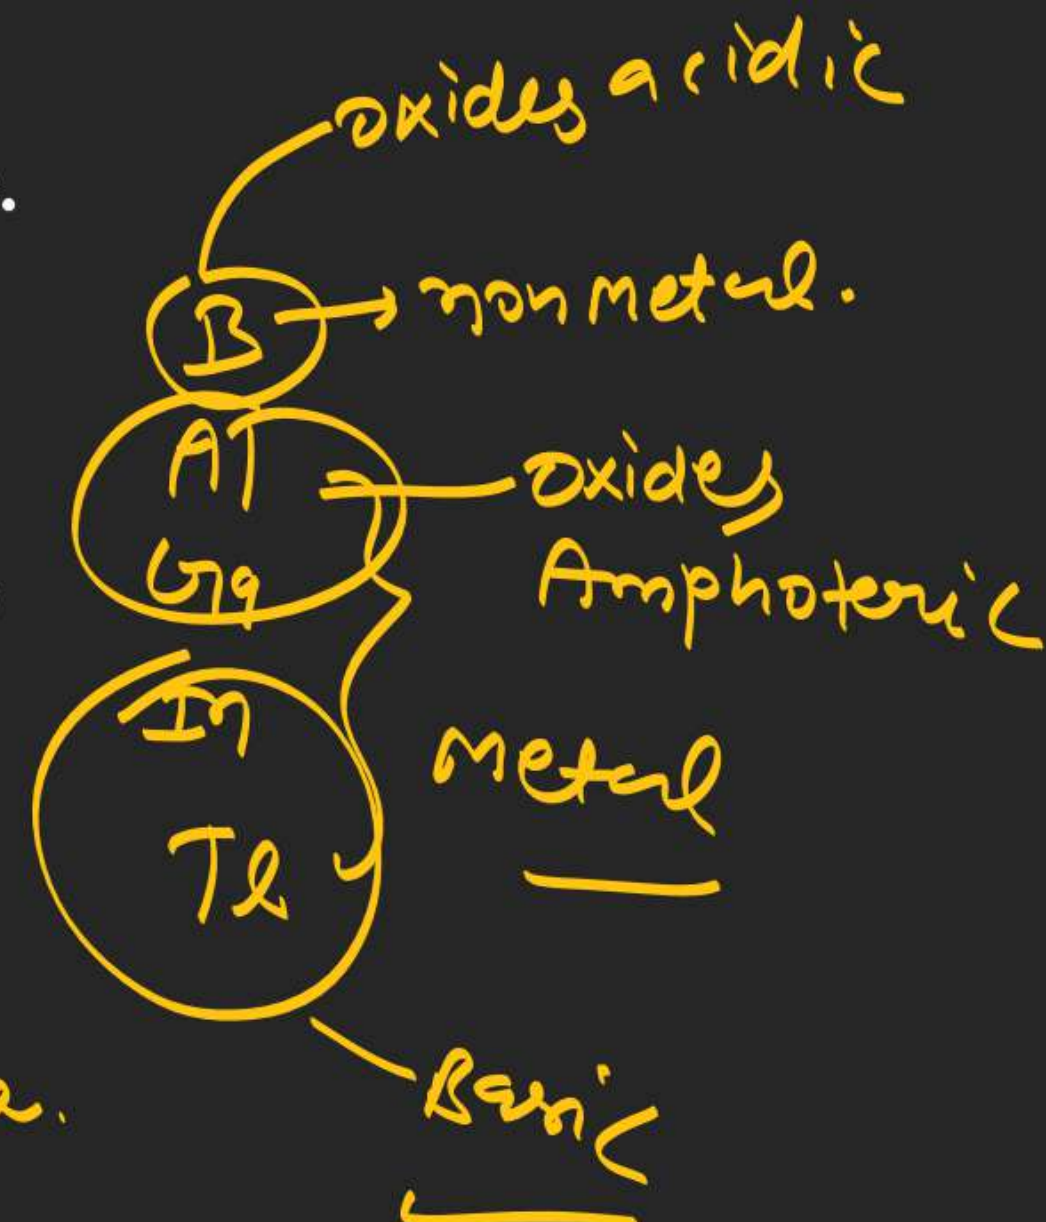 oxides acidic
B → nonmetal.
Al
Ga
oxides
Amphoteric
In
Tl
Metal
Basic